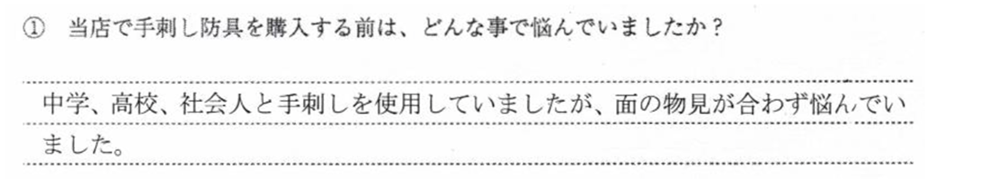 ① 当店で手刺し防具を購入する前は、どんな事で悩んでいましたか？
中学、高校、社会人と手刺しを使用していましたが、面の物見が合わず悩んでい
ました。